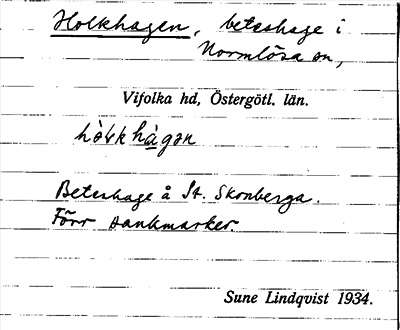 Holkhagen, beteshage i
Normlösa sn,
Vifolka hd, Östergötl. län.
hà̊lkhàgən
Beteshage å St. Skönberga.
Förr sankmarker.
Sune Lindqvist 1934.